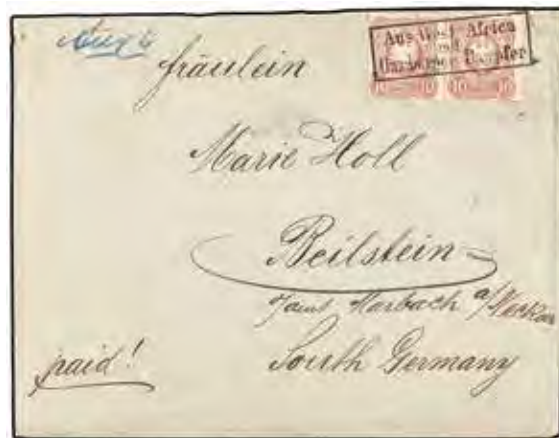 Aus West-Africa
mit
Hamburger Dampfer
10 10
fräulein
Marie Holl
Beilstein
Marbach a/Neckar
South Germany
paid!